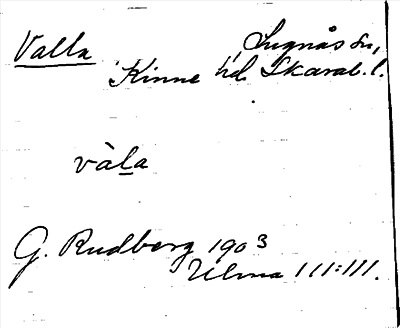 Valla Lugnås sn,
Kinne hd. Skarab. l.
vàla
G. Rudberg 1903
Ulma 111:111.